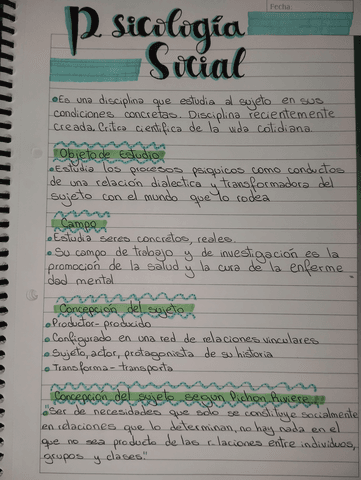 Fecha:
Psicología
Social
•Es una disciplina que estudia al sujeto en sus
condiciones concretas. Disciplina recientemente
creada. Critica cientifica de la vida cotidiana.
Objeto de estudio
•Estudia los procesos psiquicos como conductos
de una relación dialectica y transformadora del
sujeto con el mundo que lo rodea
Campo
•Estudia seres concretos, reales.
•Su campo de trabajo y de investigación es la
promoción de la salud y la cura de la enferme-
dad mental
Concepción del sujeto
•Productor-producido
•Configurado en una red de relaciones vinculares
•Sujeto, actor, protagonista de su historia
•Transforma-transporta
Concepción del sujeto según Pichon Riviere
"Ser de necesidades que solo se constituye socialmente
en relaciones que lo determinan, no hay nada en el
que no sea producto de las relaciones entre individuos,
grupos y clases."